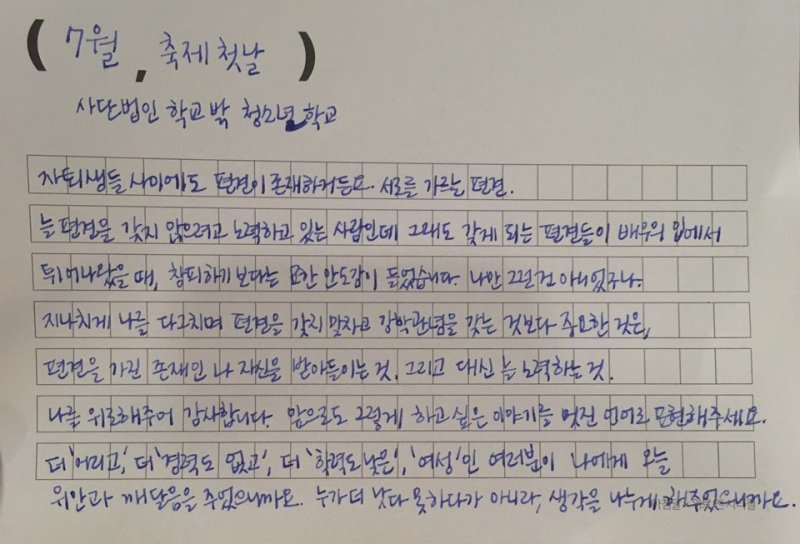 ( 7월, 축제 첫날 )
사단법인 학교밖 청소년 학교
자퇴생들 사이에도 편견이 존재하거든요. 서로를 가르는 편견.
늘 편견을 갖지 않으려고 노력하고 있는 사람인데 그래도 갖게 되는 편견들이 배우의 입에서
튀어나왔을 때, 창피하기 보다는 묘한 안도감이 들었습니다. 나만 그런건 아니었구나.
지나치게 나를 다그치며 편견을 갖지 말자고 강박관념을 갖는 것보다 중요한 것은,
편견을 가진 존재인 나 자신을 받아들이는 것. 그리고 대신 늘 노력하는 것.
나를 위로해주어 감사합니다. 앞으로도 그렇게 하고 싶은 이야기를 멋진 언어로 표현해주세요.
더 '어리고', 더 '경력도 없고', 더 '학력도 낮은', '여성'인 여러분이 나에게 오늘
위안과 깨달음을 주었으니까요. 누가 더 낫다 못하다가 아니라, 생각을 나누게 해주었으니까요.